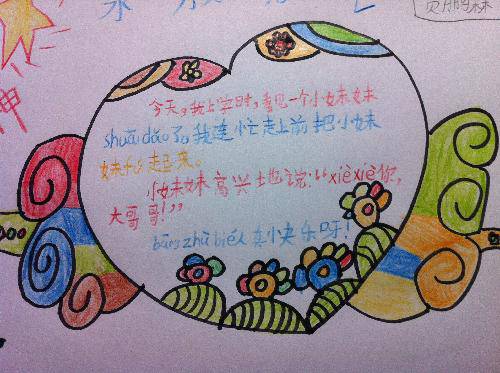 神
今天,我上学时,看见一个小妹妹
shuāi dǎo了。我连忙走上前把小妹
妹fú起来。
小妹妹高兴地说:“xiè xiè你,
大哥哥!”
bāng zhù bié人真快乐呀!